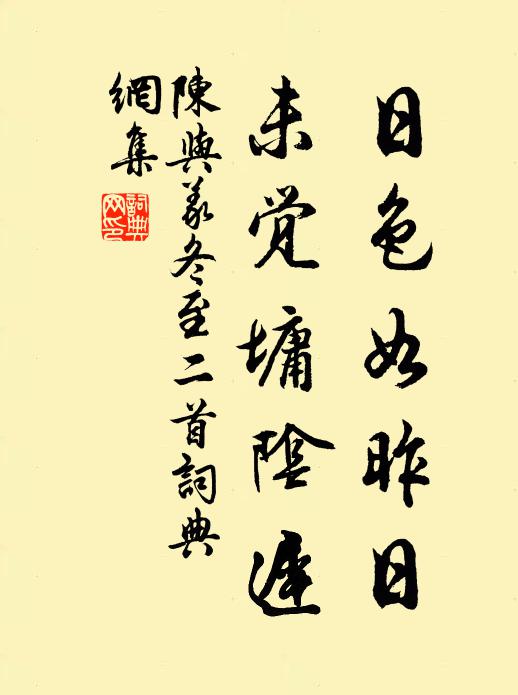 日色如昨日
未觉墉陰遲
陳與義冬至二首詞典
網集
詞典
网印